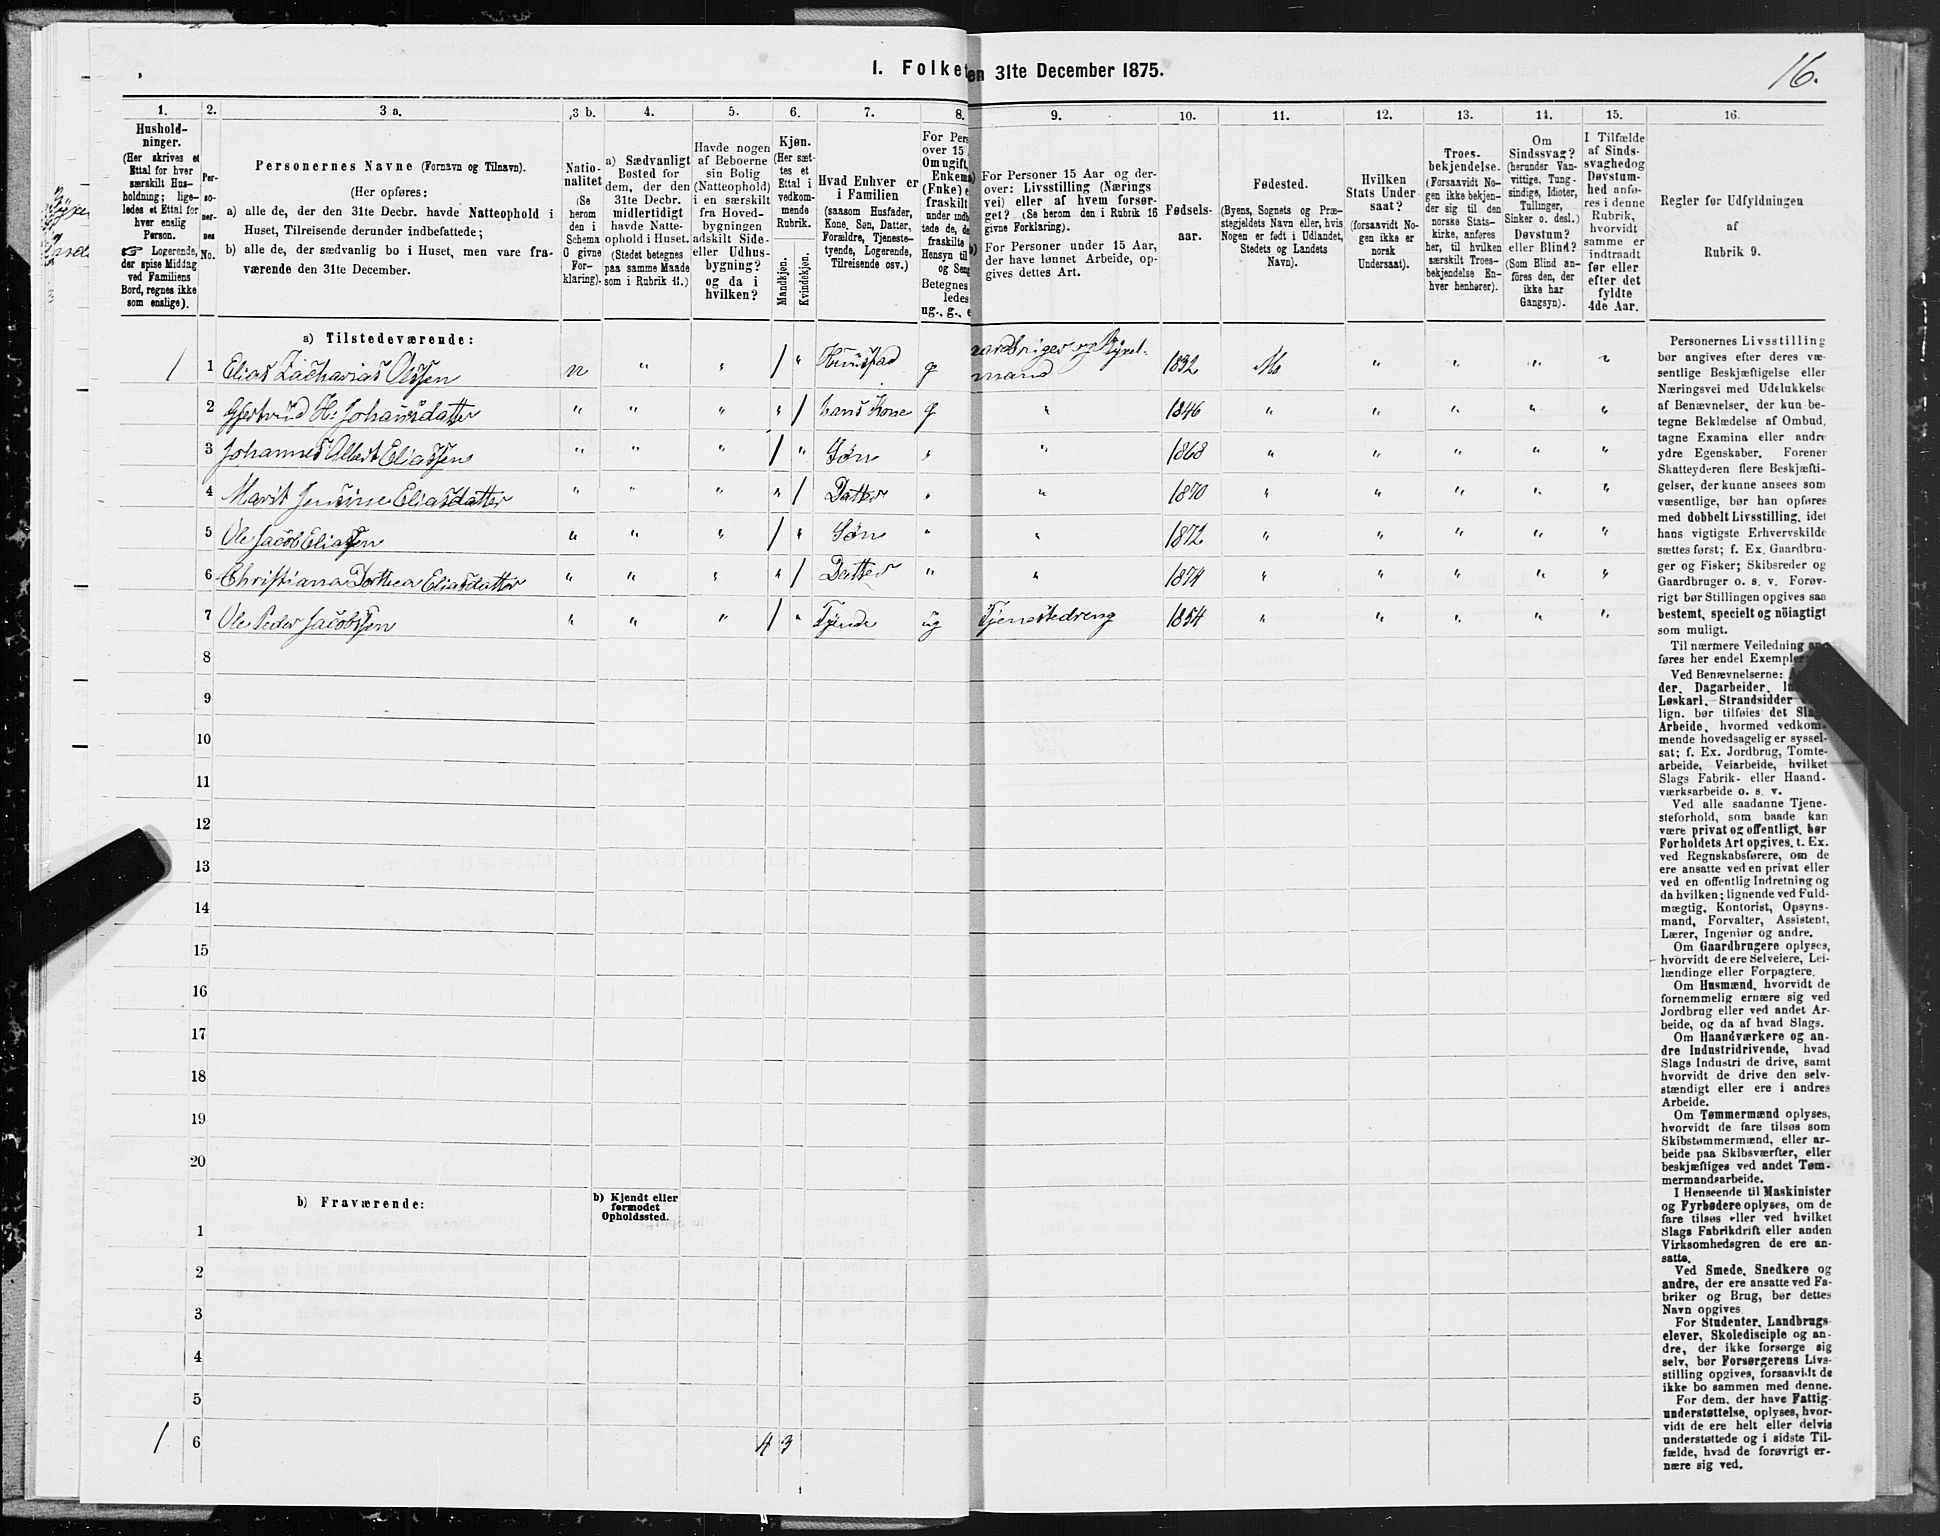 I. Folket
en 31te December 1875.
16.
1. 2. 3 a. 3 b. 4. 5. 6. 7. 8. 9. 10. 11. 12. 13. 14. 15. 16.
Hushold-
ninger.
(Her skrives et
Ettal for hver
særskilt Hus-
holdning; lige-
ledes et Ettal for
hver enslig
Person.
☞ Logerende,
der spise Middag
ved Familiens
Bord, regnes ikke
som enslige).
Per-
so-
ner-
nes
No.
Personernes Navne (Fornavn og Tilnavn).
(Her opføres:
a) alle de, der den 31te Decbr. havde Natteophold i
Huset, Tilreisende derunder indbefattede;
b) alle de, der sædvanlig bo i Huset, men vare fra-
værende den 31te December.
Natio-
nalitet
(Se
herom
den i
Schema
O givne
For-
klaring).
a) Sædvanligt
Bosted for
dem, der den
31te Decbr.
midlertidigt
havde Natte-
ophold i Huset.
(Stedet betegnes
paa samme Maade
som i Rubrik 11.)
Havde nogen
af Beboerne
sin Bolig
(Natteophold)
i en særskilt
fra Hoved-
bygningen
adskilt Side-
eller Udhus-
bygning?
og da i
hvilken?
Kjøn.
(Her sæt-
tes et
Ettal i
vedkom-
mende
Rubrik.
Mandkjøn.
Kvindekjøn.
Hvad Enhver er
i Familien
(saasom Husfader,
Kone, Søn, Datter,
Forældre, Tjeneste-
tyende, Logerende,
Tilreisende osv.)
For Pers
over 15
Om ugift,
Enkema
(Fnke) e
fraskilt
under indb
tede de, d
fraskilte
Hensyn til
og Seng
Betegnes
ledes
ug., g., e
For Personer 15 Aar og der-
over: Livsstilling (Nærings
vei) eller af hvem forsør-
get? (Se herom den i Rubrik 16
givne Forklaring).
For Personer under 15 Aar,
der have lønnet Arbeide, op-
gives dettes Art.
Fødsels-
aar.
Fødested.
(Byens, Sognets og Præ-
stegjeldets Navn eller, hvis
Nogen er født i Udlandet,
Stedets og Landets
Navn).
Hvilken
Stats Under-
saat?
(forsaavidt No-
gen ikke er
norsk
Undersaat).
Troes-
bekjendelse.
(Forsaavidt No-
gen ikke bekjen-
der sig til den
norske Stats-
kirke, anføres
her, til hvilken
særskilt Troes-
bekjendelse En-
hver henhører).
Om
Sindssvag?
(herunder Van-
vittige, Tung-
sindige, Idioter,
Tullinger,
Sinker o. desl.)
Døvstum?
eller Blind?
(Som Blind an-
føres den, der
ikke har
Gangsyn).
I Tilfælde
af Sinds-
svaghedog
Døvstum-
hed anfø-
res i denne
Rubrik,
hvorvidt
samme er
indtraadt
før eller
efter det
fyldte
4de Aar.
Regler for Udfyldningen
af
Rubrik 9.
a) Tilstedeværende:
1 1 Elias Zacharias Olssen n " " 1 " Huusfad g aardbruger og Bygsel-
mand 1832 Mo " " " "
2 Gjertrud H: Johansdatter " " " " 1 hans Kone g " 1846 " " " " "
3 Johannes Albert Eliassen " " " 1 " Søn " " 1868 " " " " "
4 Marit Jensine Eliasdatter " " " " 1 Datter " " 1870 " " " " "
5 Ole Jacob Eliassen " " " 1 " Søn " " 1872 " " " " "
6 Christiana Dorthea Eliasdatter " " " " 1 Datter " " 1874 " " " " "
7 Ole Peder Jacobssen " " " 1 " Tjende ug Tjenestedreng 1854 " " " " "
8
9
10
11
12
13
14
15
16
17
18
19
20
b) Fraværende:
b) Kjendt eller
formodet
Opholdssted.
1
2
3
4
5
1 6 4 3
Personernes Livsstilling
bør angives efter deres væ-
sentlige Beskjæftigelse eller
Næringsvei med Udelukkelse
af Benævnelser, der kun be-
tegne Beklædelse af Ombud,
tagne Examina eller andre
ydre Egenskaber. Forener
Skatteyderen flere Beskjæfti-
gelser, der kunne ansees som
væsentlige, bør han opføres
med dobbelt Livsstilling, idet
hans vigtigste Erhvervskilde
sættes først; f. Ex. Gaardbru-
ger og Fisker; Skibsreder og
Gaardbruger o. s. v. Forøv-
rigt bør Stillingen opgives saa
bestemt, specielt og nöiagtigt
som muligt.
Til nærmere Veiledning an-
føres her endel Exempler:
Ved Benævnelserne:
der, Dagarbeider,
Løskarl, Strandsidder
lign. bør tilføies det Slags
Arbeide, hvormed vedkom-
mende hovedsagelig er syssel-
sat; f. Ex. Jordbrug, Tomte-
arbeide, Veiarbeide, hvilket
Slags Fabrik- eller Haand-
værksarbeide o. s. v.
Ved alle saadanne Tjene-
steforhold, som baade kan
være privat og offentligt, bør
Forholdets Art opgives, t. Ex.
ved Regnskabsførere, om de
ere ansatte ved en privat eller
ved en offentlig Indretning og
da hvilken; lignende ved Fuld-
mægtig, Kontorist, Opsyns-
mand, Forvalter, Assistent,
Lærer, Ingeniør og andre.
Om Gaardbrugere oplyses,
hvorvidt de ere Selveiere, Lei-
lændinge eller Forpagtere.
Om Husmænd, hvorvidt de
fornemmelig ernære sig ved
Jordbrug eller ved andet Ar-
beide, og da af hvad Slags.
Om Haandværkere og an-
dre Industridrivende, hvad
Slags Industri de drive, samt
hvorvidt de drive den selv-
stændigt eller ere i andres
Arbeide.
Om Tømmermænd oplyses,
hvorvidt de fare tilsøs som
Skibstømmermænd, eller ar-
beide paa Skibsværfter, eller
beskjæftiges ved andet Tøm-
mermandsarbeide.
I Henseende til Maskinister
og Fyrbødere oplyses, om de
fare tilsøs eller ved hvilket
Slags Fabrikdrift eller anden
Virksomhedsgren de ere an-
satte.
Ved Smede, Snedkere og
andre, der ere ansatte ved Fa-
briker og Brug, bør dettes
Navn opgives
For Studenter, Landbrugs-
elever, Skoledisciple og an-
dre, der ikke forsørge sig
selv, bør Forsørgerens Livs-
stilling opgives, forsaavidt de
ikke bo sammen med denne.
For dem, der have Fattig-
understøttelse, oplyses, hvor-
vidt de ere helt eller delvis
understøttede og i sidste Til-
fælde, hvad de forøvrigt er-
nære sig ved.